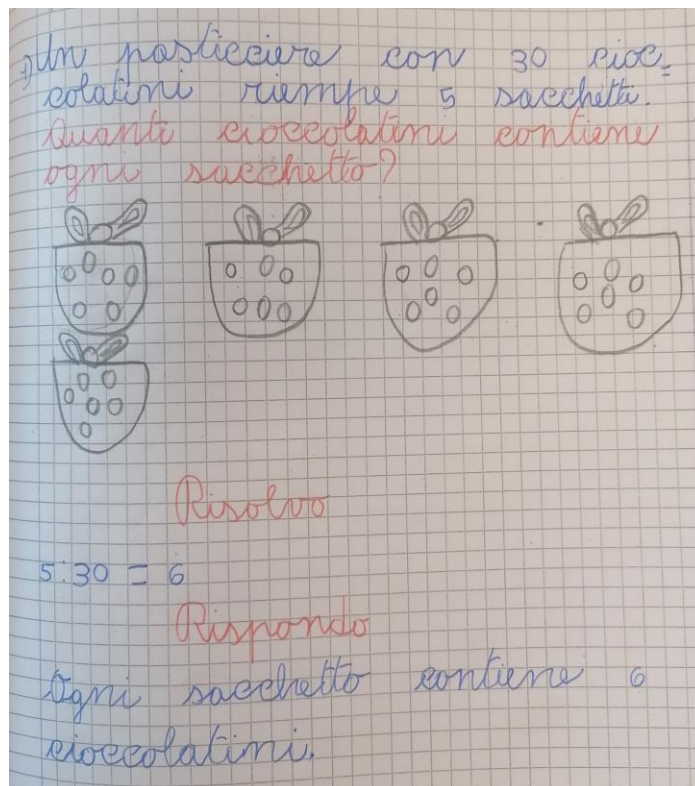 1) Un pasticciere con 30 cioc=
colatini riempe 5 sacchetti.
Quanti cioccolatini contiene
ogni sacchetto?
Risolvo
5:30 = 6
Rispondo
Ogni sacchetto contiene 6
cioccolatini.